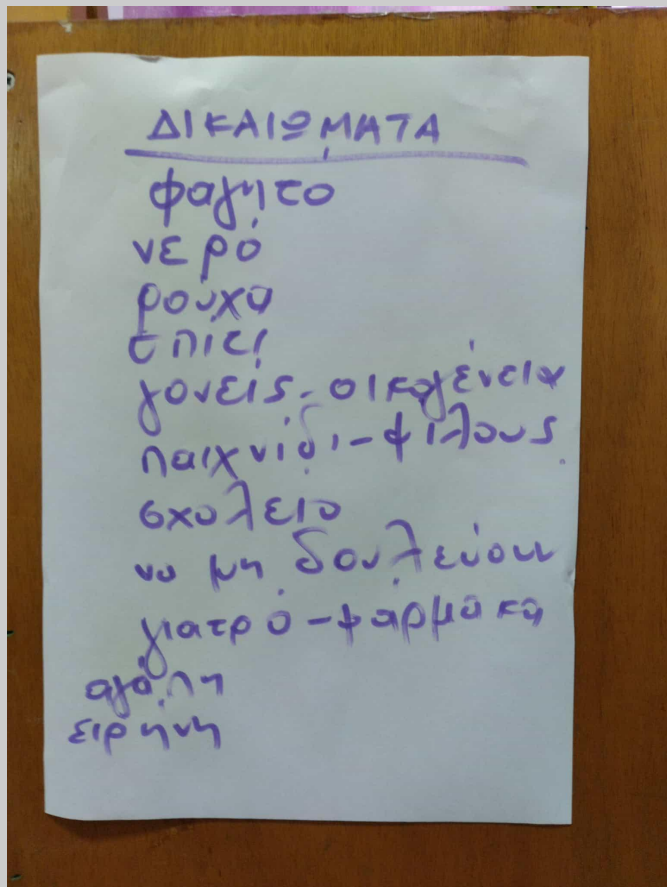 ΔΙΚΑΙΩΜΑΤΑ
φαγητο
νερό
ρουχα
σπιτι
γονείς - οικογένεια
παιχνίδι - φίλους
σχολείο
να μη δουλεύουν
γιατρό - φάρμακα
αγάπη
ειρήνη